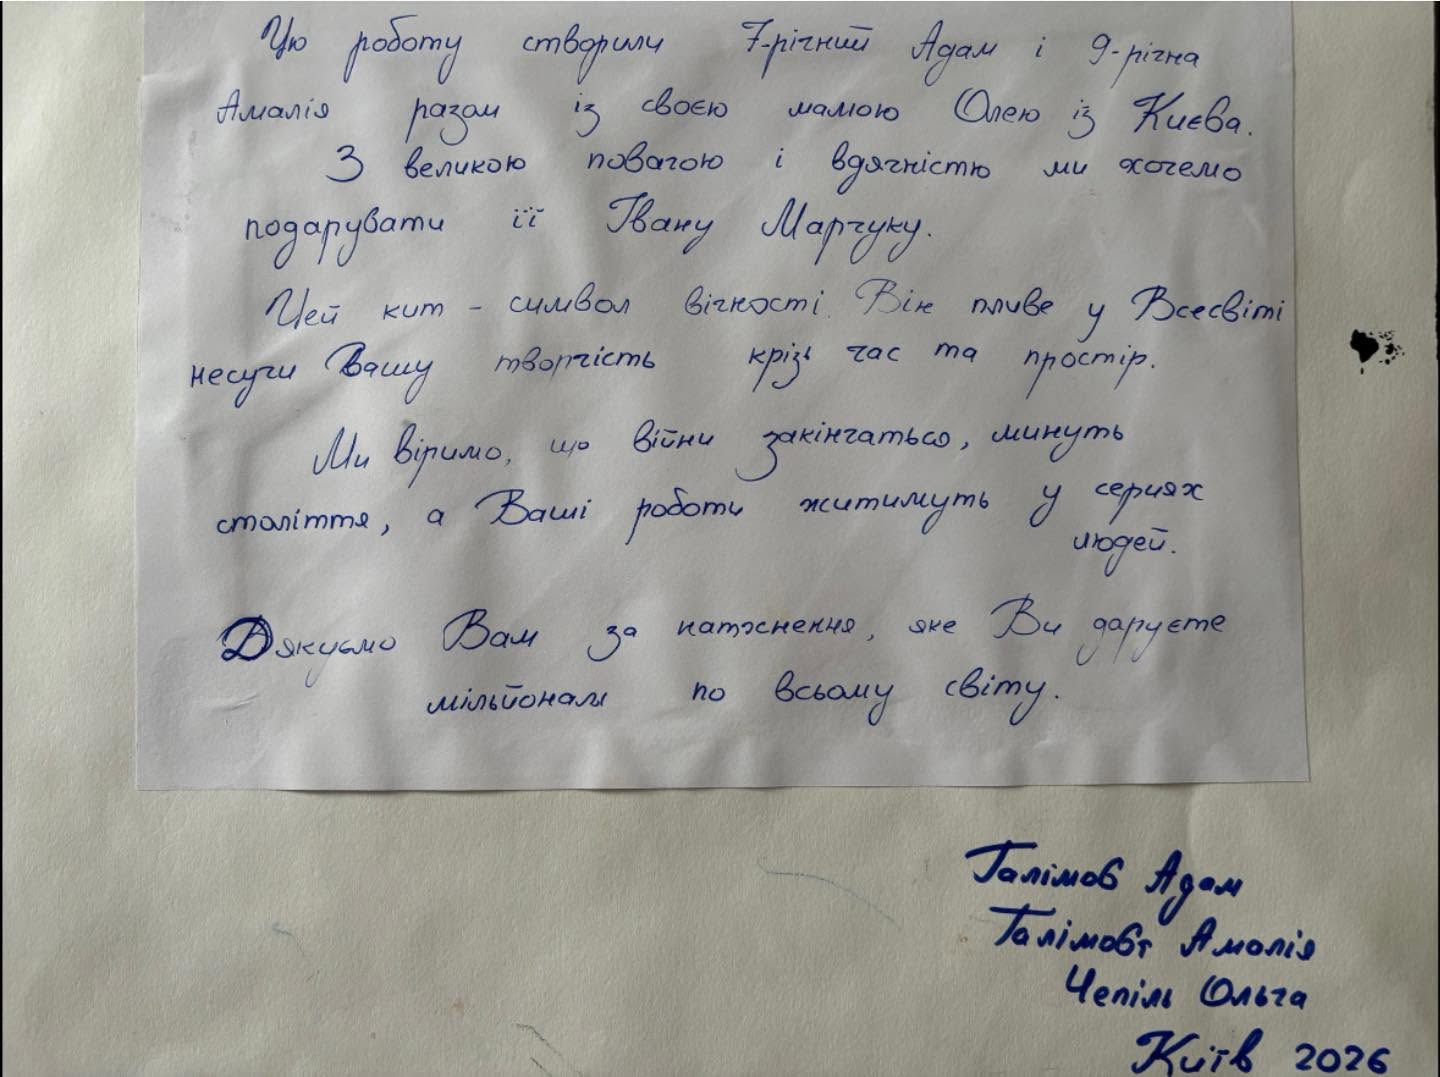 Цю роботу створили 7-річний Адам і 9-річна
Амалія разом із своєю мамою Олею із Києва.
З великою повагою і вдячністю ми хочемо
подарувати її Івану Марчуку.
Цей кит - символ вічності. Він пливе у Всесвіті
несучи Вашу творчість крізь час та простір.
Ми віримо, що війни закінчаться, минуть
століття, а Ваші роботи житимуть у серцях
людей.
Дякуємо Вам за натхнення, яке Ви даруєте
мільйонам по всьому світу.
Галімов Адам
Амалія
Чепіль Ольга
Київ 2026